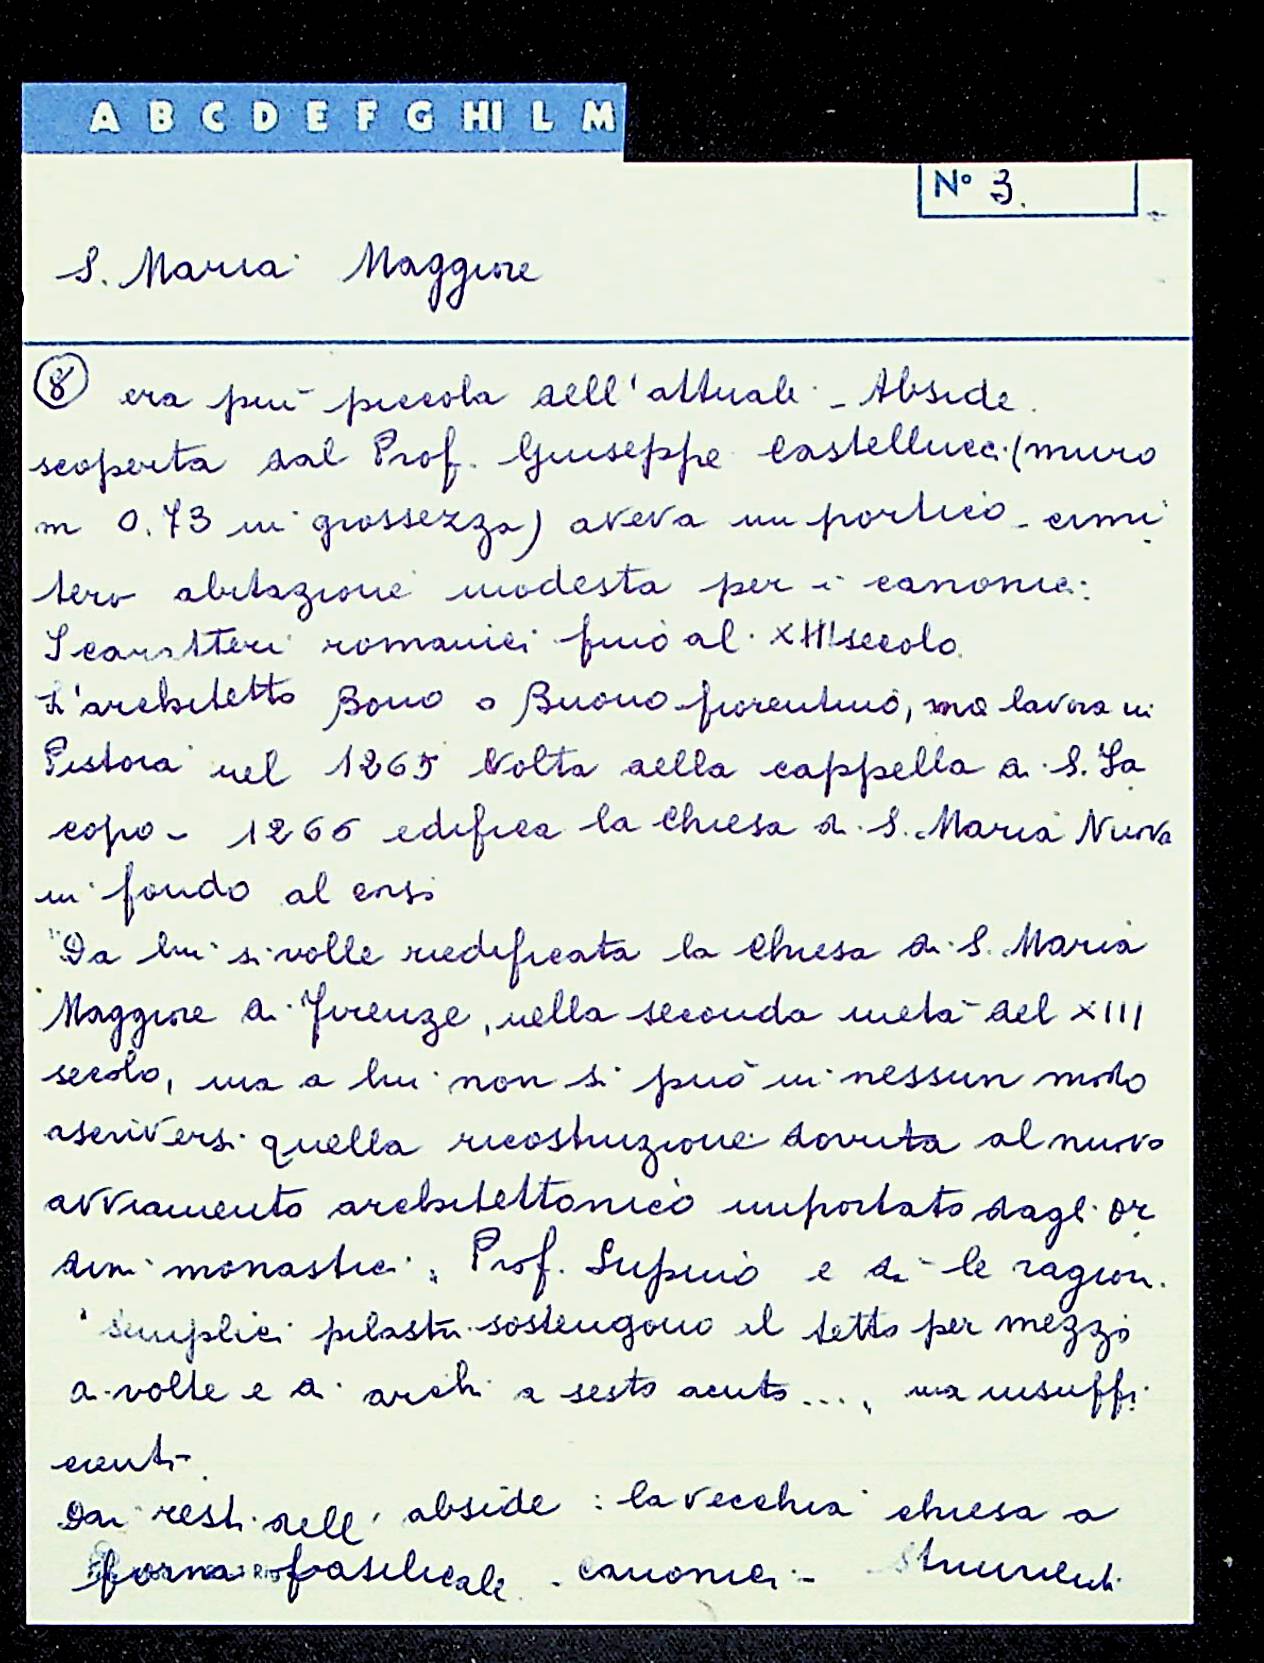 A B C D E F G HI L M
N° 3.
S. Maria Maggiore
⑧ era più piccola dell'attuale - Abside
scoperta dal Prof. Giuseppe Castellucci (muro
m 0.73 in grossezza) aveva un portico - cimi
tero abitazione modesta per i canonici:
I caratteri romanici fino al XIII secolo.
L'architetto Bono o Buono fiorentino, ma lavora in
Pistoia nel 1265 Volta della cappella di S. Ja
copo - 1266 edifica la Chiesa di S. Maria Nuova
in fondo al corsi
"Da lui si volle riedificata la Chiesa di S. Maria
Maggiore di Firenze, nella seconda metà del XIII
secolo, ma a lui non si può in nessun modo
ascriversi quella ricostruzione dovuta al nuovo
avviamento architettonico importato dagli or
dini monastici: Prof. Supino e dà le ragioni.
" Semplici pilastri sostengono il tetto per mezzo
di volte e di archi a sesto acuto...., ma insuffi
cienti -
Dai resti dell'abside : la vecchia chiesa a
forma basilicale - canonici -